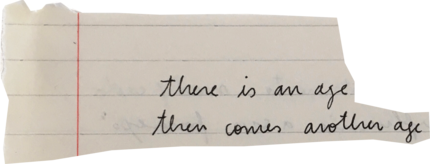 there is an age
then comes another age